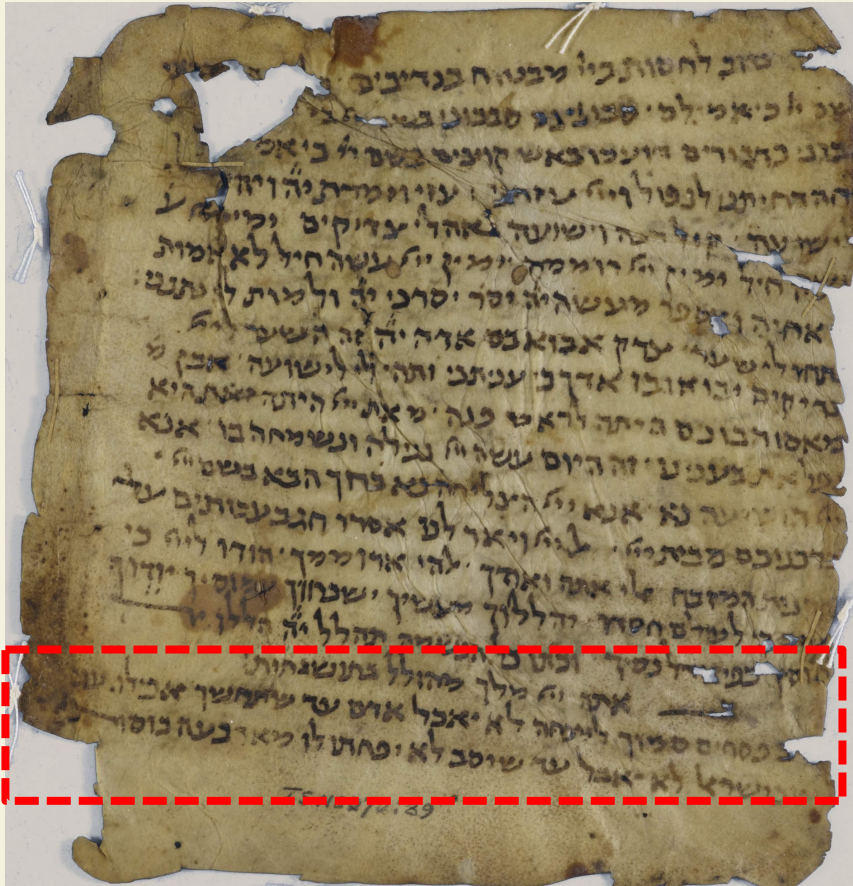 טוב לחסות בייי מבטוח בנדיבים
ייי כי אמילם סבוני גם סבבוני בשם ייי
סבוני כדבורים דועכו כאש קוצים בשם ייי כי אמ
דחיתני לנפול וייי עזרני עזי וזמרת יה ויהי
לישועה קול רנה וישועה באהלי צדיקים ימין ייי ע
חיל ימין ייי רוממה ימין ייי עשה חיל לא אמות
אחיה ואספר מעשה יה יסר יסרני יה ולמות לא נתנני
פתחו לי שערי צדק אבוא בם אודה יה זה השער לייי
צדיקים יבואו בו אודך כי עניתני ותהי לי לישועה אבן מ
מאסו הבונים היתה לראש פנה מאת ייי היתה זאת היא
נפלאת בעינינו זה היום עשה ייי נגילה ונשמחה בו אנא
ייי הושיעה נא אנא ייי הצליחה נא ברוך הבא בשם ייי
ברכנוכם מבית ייי אל ייי ויאר לנו אסרו חג בעבותים עד
קרנות המזבח אלי אתה ואודך אלהי ארוממך הודו לייי כי
טוב כי לעולם חסדו יהללוך מעשיך ישברוך וחוסיך יודוך
כל הנשמה תהלל יה הללו יה
אתה ייי מלך מהולל בתושבחות
ערב פסחים סמוך למנחה לא יאכל אדם עד שתחשך אפילו עני
שבישראל לא יאכל עד שיסב לא יפחתו לו מארבעה כוסות